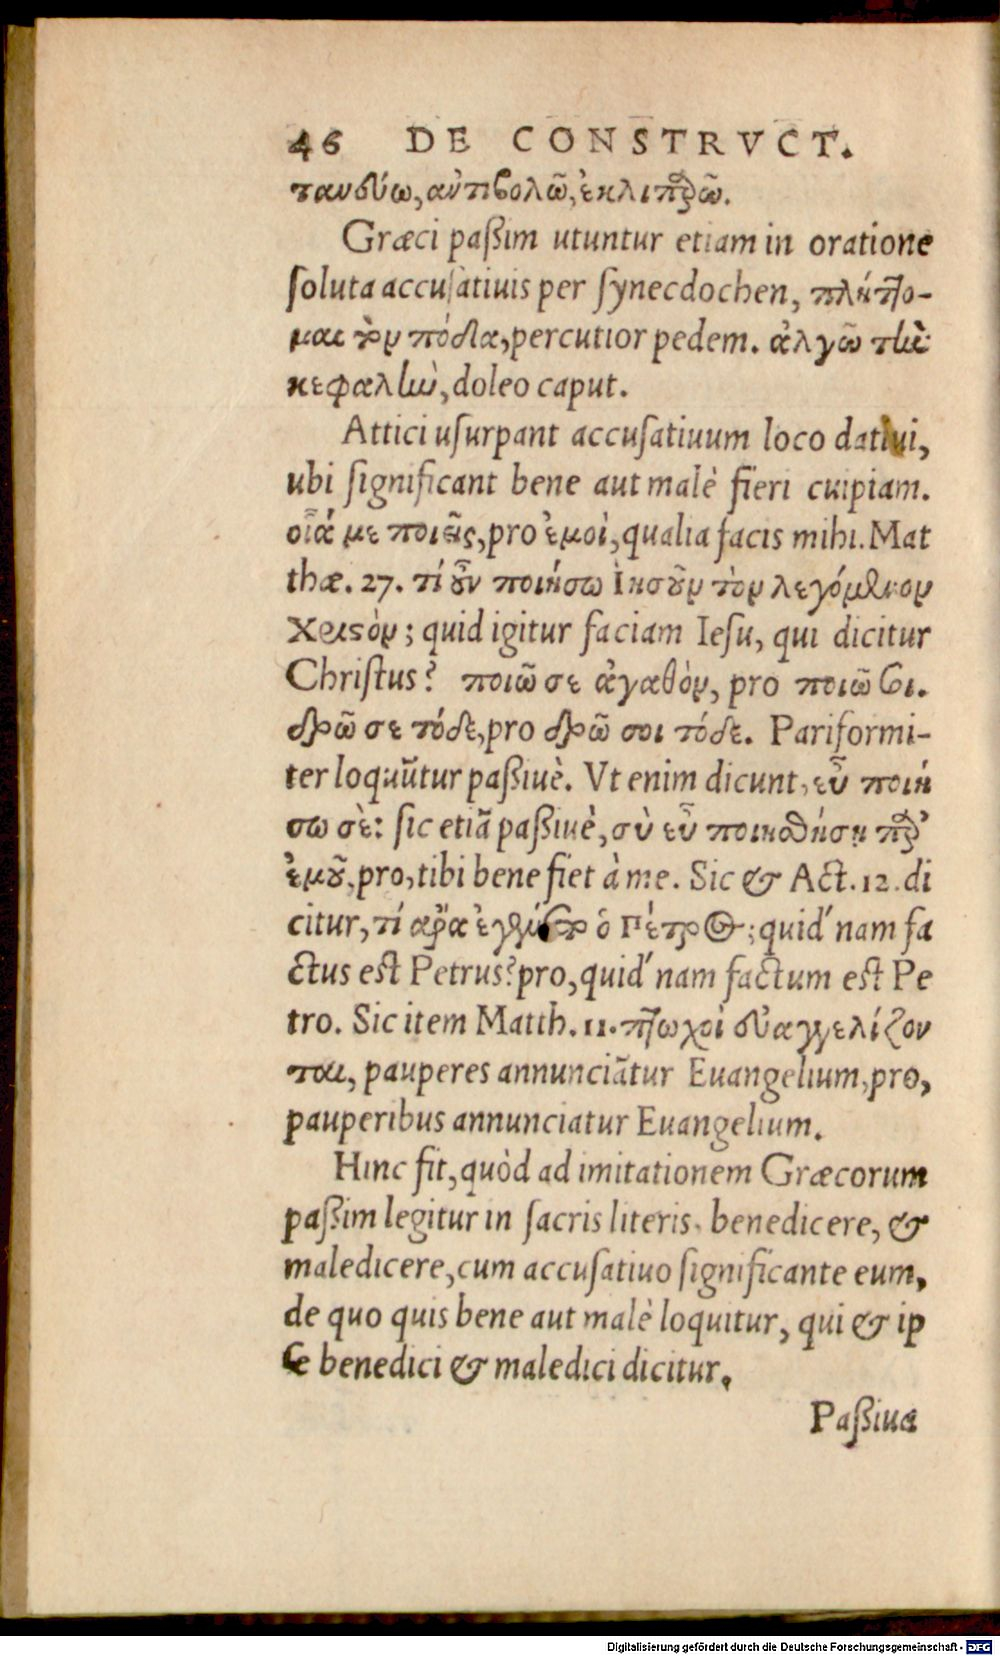 46 DE CONSTRVCT.
τανεύω, ἀντιβολῶ, ἐκλιπαρῶ.
Græci paßim utuntur etiam in oratione
soluta accusatiuis per synecdochen, πλήττο-
μαι τὸν πόδα, percutior pedem. ἀλγῶ τὴν
κεφαλὴν, doleo caput.
Attici usurpant accusatiuum loco datiui,
ubi significant bene aut malè fieri cuipiam.
οἷά με ποιεῖς, pro ἐμοὶ, qualia facis mihi. Mat
thæ. 27. τί οὖν ποιήσω Ἰησοῦν τὸν λεγόμενον
Χριστὸν; quid igitur faciam Iesu, qui dicitur
Christus? ποιῶ σε ἀγαθὸν, pro ποιῶ σοι.
δρῶ σε τόδε, pro δρῶ σοι τόδε. Pariformi-
ter loquũtur paßiuè. Vt enim dicunt, εὖ ποιή
σω σὲ: sic etiã paßiuè, σὺ εὖ ποιηθήσῃ παρ’
ἐμοῦ, pro, tibi bene fiet à me. Sic & Act. 12. di
citur, τί ἄρα ἐγένετο ὁ Πέτρος; quid’nam fa
ctus est Petrus? pro, quid’nam factum est Pe
tro. Sic item Matth. 11. πτωχοὶ εὐαγγελίζον
ται, pauperes annunciãtur Euangelium, pro,
pauperibus annunciatur Euangelium.
Hinc fit, quòd ad imitationem Græcorum
paßim legitur in sacris literis, benedicere, &
maledicere, cum accusatiuo significante eum,
de quo quis bene aut malè loquitur, qui & ip
se benedici & maledici dicitur.
Paßiua
Digitalisierung gefördert durch die Deutsche Forschungsgemeinschaft - DFG